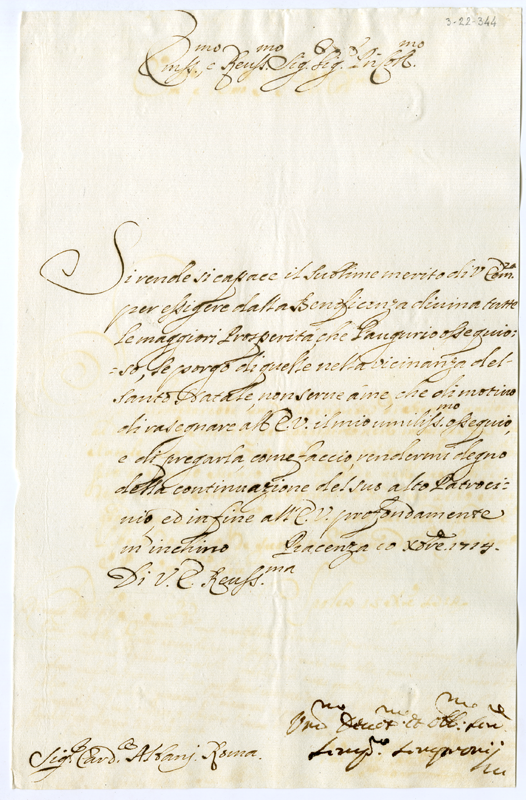 3-22-344
Emiss.mo e Reuss.mo Sig. Sig.
Si rende si capace il sublime merito di V. Em.za
per esigere dalla Beneficenza divina tutte
le maggiori Prosperità, che l'augurio ossequio:
=so, le porgo di quelle nella vicinanza del
Santo Natale, non serve à me, che di motivo
di rasegnare all'E.V. il mio umiliss.mo ossequio,
e di pregarla, come faccio, rendermi degno
della continuazione del suo alto Patroci-
nio, ed in fine all'E.V. profondamente
m'inchino Piacenza 10 Xbre 1714.
Di V. E. Reuss.ma
Um.mo Deuot.mo et Obl.mo Ser.re
Sig.r Card.le Albani. Roma.